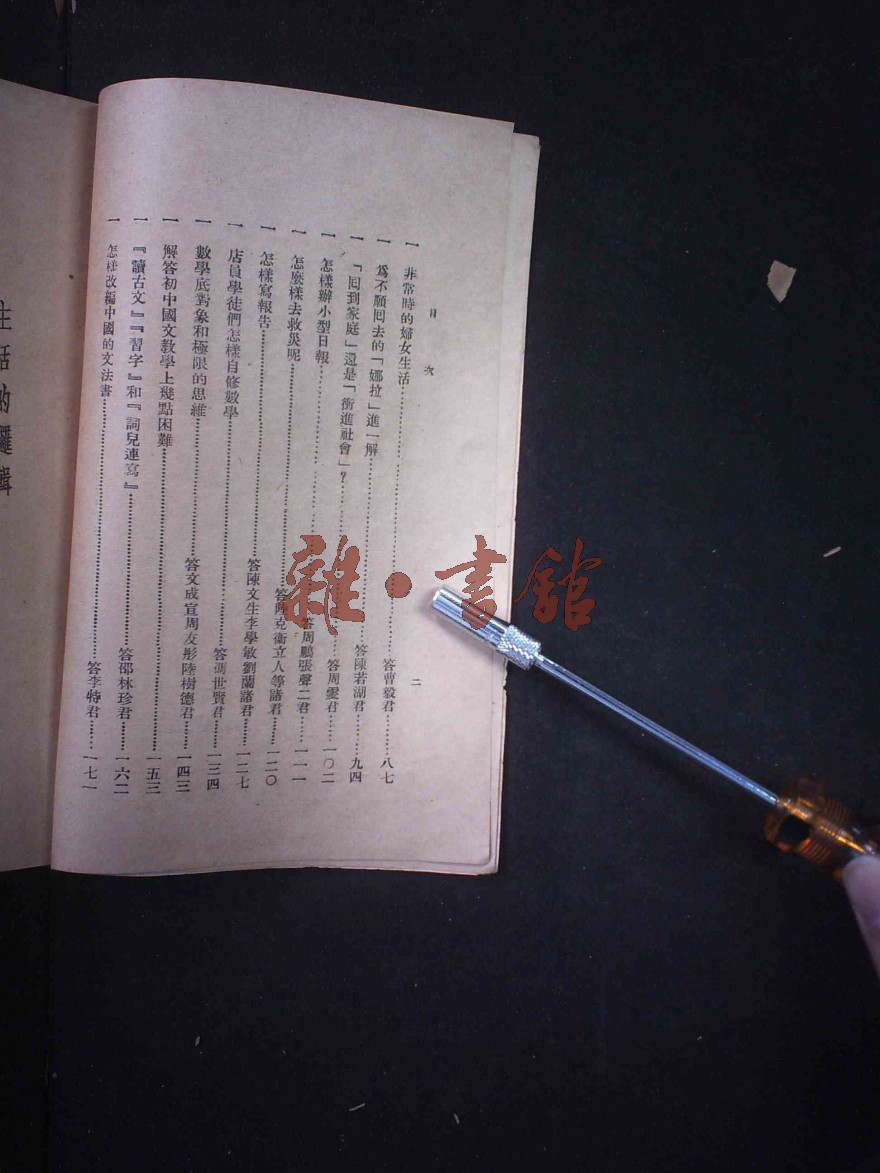 目次
二
一 非常時的婦女生活……答曹毅君……八七
一 爲不願囘去的「娜拉」進一解……答陳若湖君……九四
一 「囘到家庭」還是「衝進社會」?……答周雯君……一〇二
一 怎樣辦小型日報……答周鵬張聲二君……一一一
一 怎麼樣去救災呢……答陸克衞立人等諸君……一二〇
一 怎樣寫報告……答陳文生李學敏劉蘭諸君……一二七
一 店員學徒們怎樣自修數學……答馮世賢君……一三四
一 數學底對象和極限的思維……答文成宣周友彤陸樹德君……一四三
一 解答初中國文教學上幾點困難……一五三
一 『讀古文』『習字』和『詞兒連寫』……答邵林珍君……一六二
一 怎樣改編中國的文法書……答李特君……一七一
生活的邏輯
雜·書館